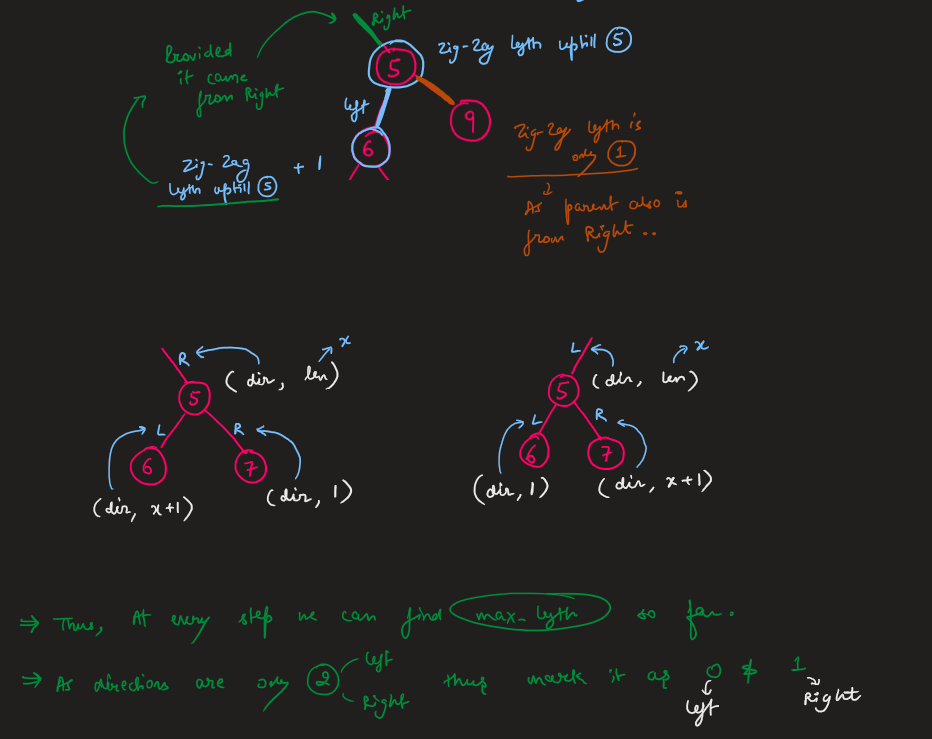 Right
Zig-Zag lgth uptill 5
Provided
it came
from Right
5
left
9
6
Zig-Zag
lgth uptill 5 + 1
Zig-Zag lgth is
only 1
As parent also is
from Right ..
R
x
(dir, len)
5
L
R
6
7
(dir, x+1)
(dir, 1)
L
x
(dir, len)
5
L
R
6
7
(dir, 1)
(dir, x+1)
⇒ Thus, At every step we can find max_lgth so far.
⇒ As directions are only 2 left Right thus mark it as 0 & 1
left
Right